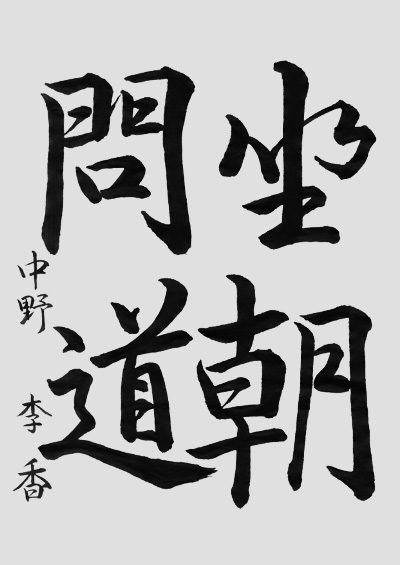 坐朝
問道
中野 李香